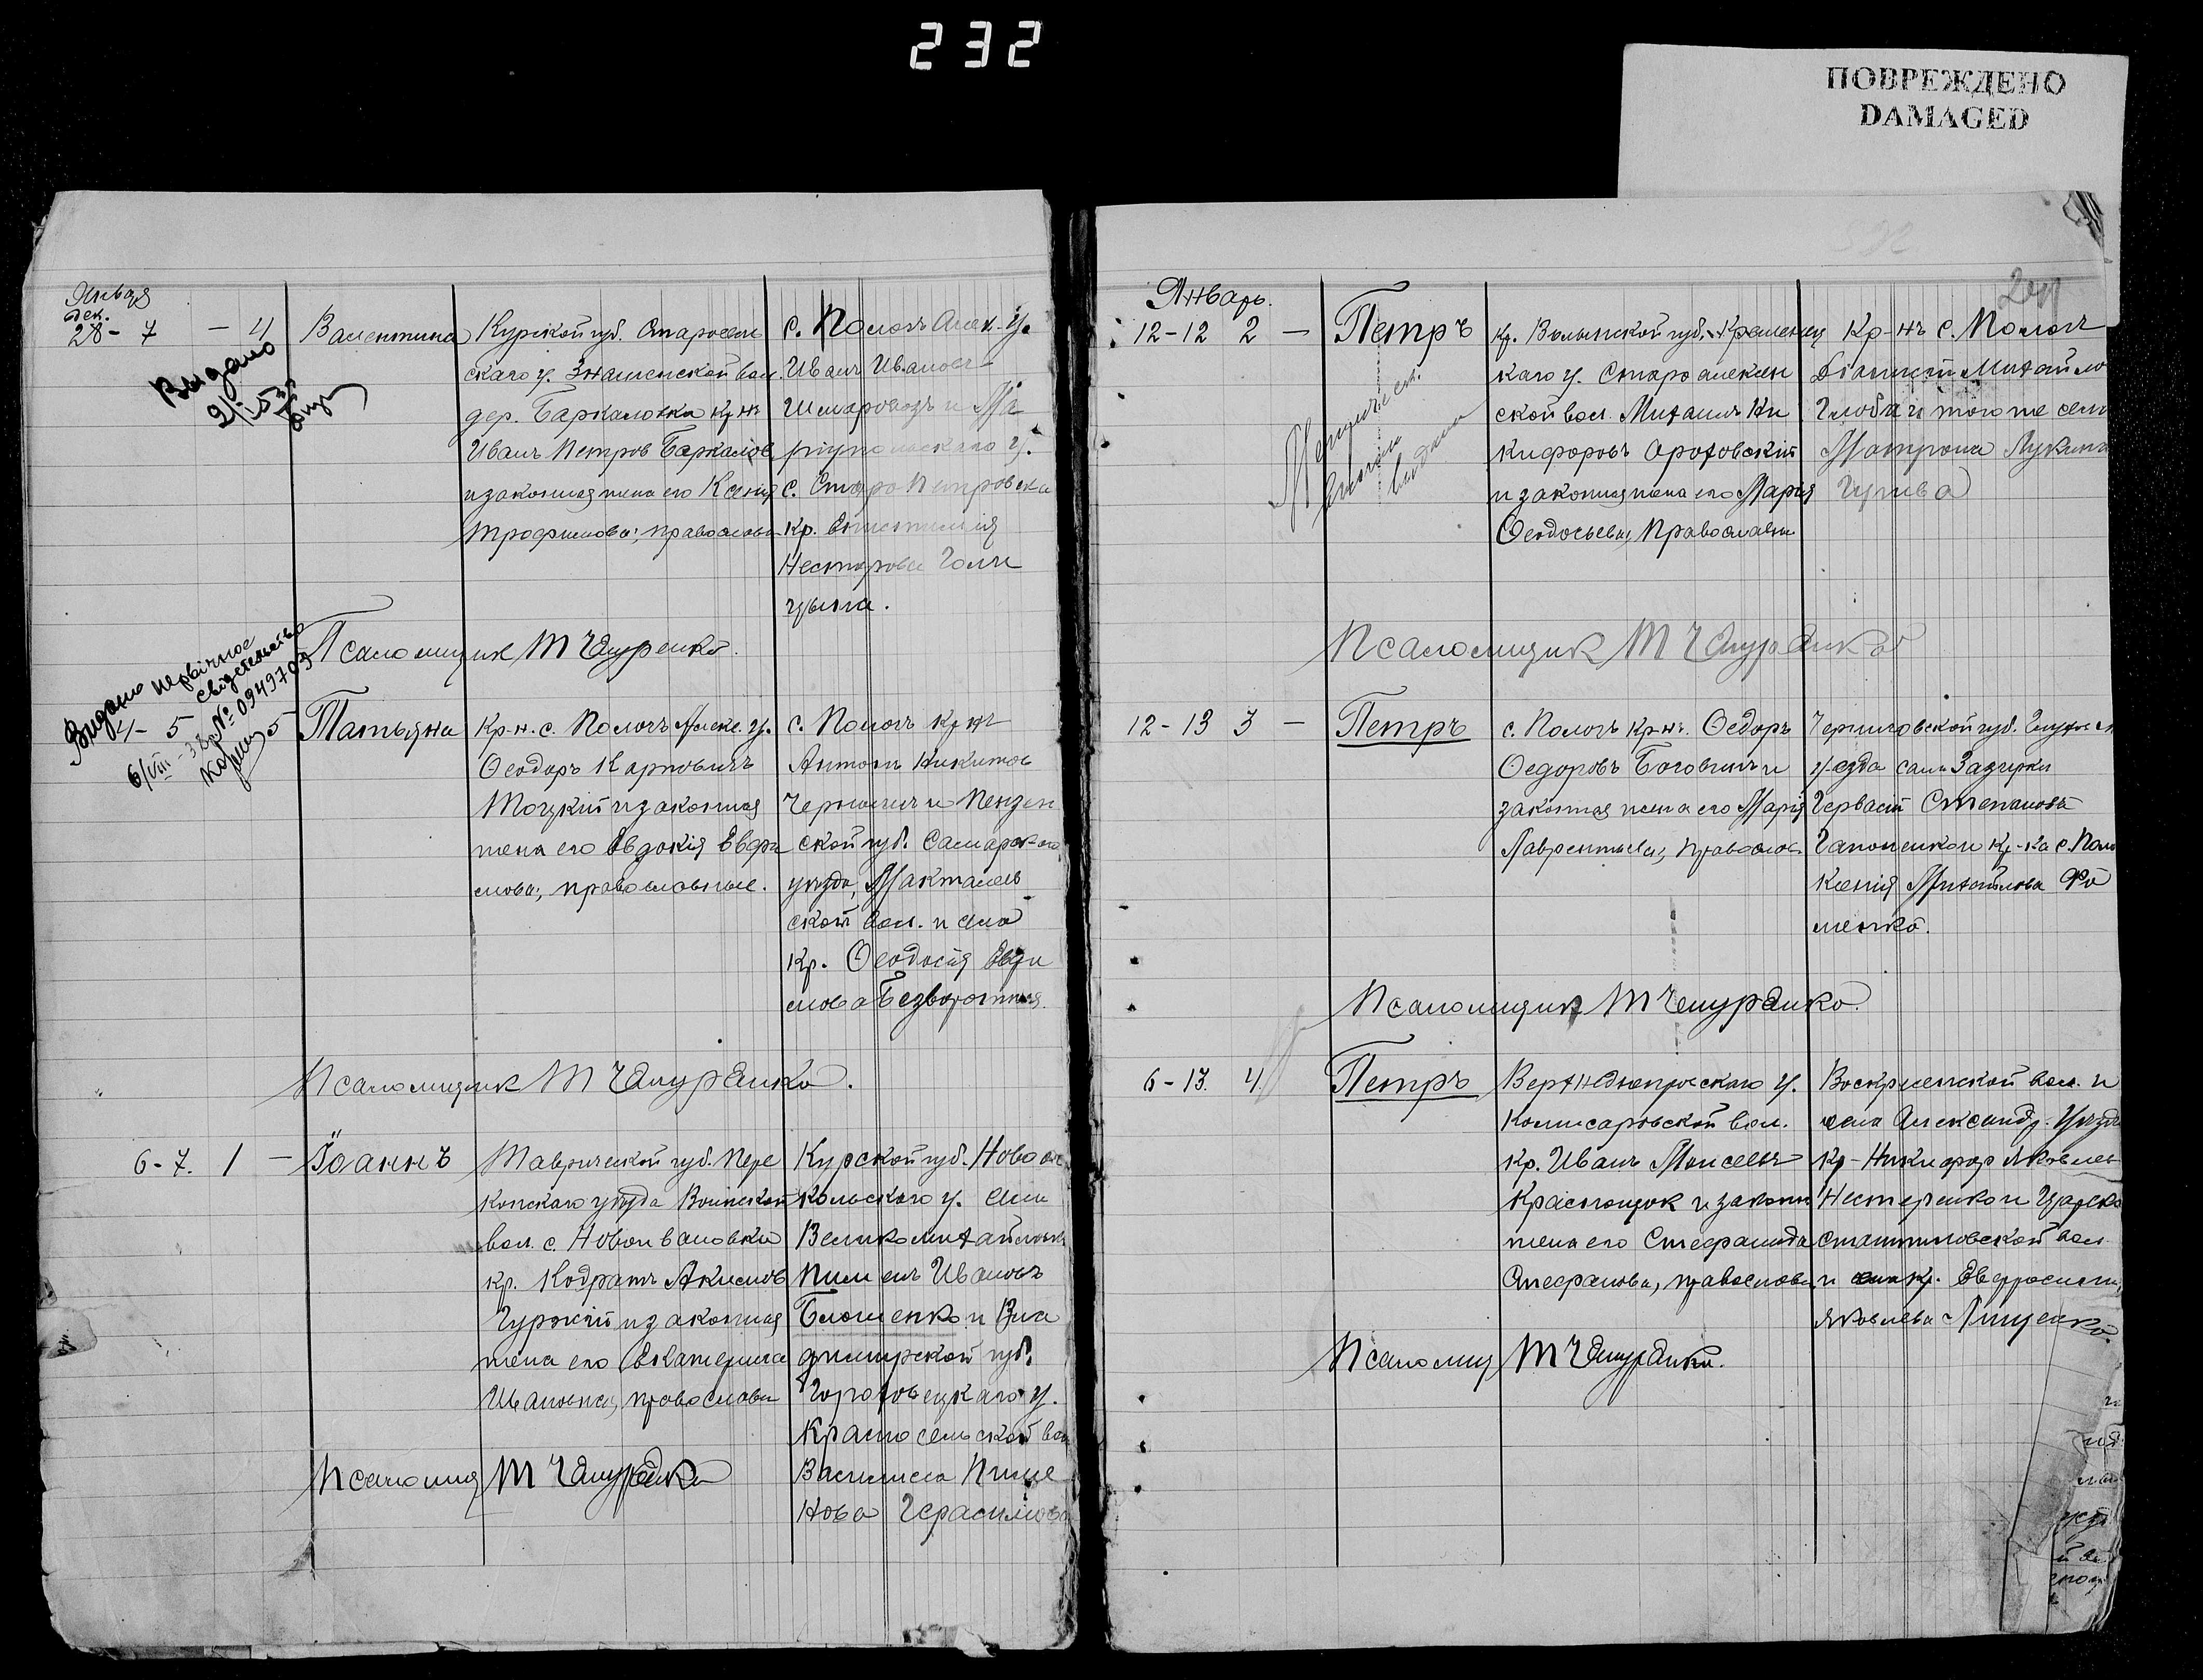 232
ПОВРЕЖДЕНО
DAMAGED
Января
дек.
28 - 7 - 4
Валентина
Курской губ. Старооскол
скаго у. Знаменской вол.
дер. Баркаловка кр-нъ
Иванъ Петров Баркалов
и законная жена его Ксенія
Трофимова; православн
с. Пологъ Алек. у.
Иванъ Ивановъ
и Ма
ріупольскаго у.
с. Старо Петровска
кр.
Несторова Голи
цына.
Выдано
Псаломщик М Чемуренко.
Выдано первічное
свідетельство
№ 0949703
6/VIII - 38
4 - 5
5
Татьяна
Кр-н. с. Пологъ Алекс. у.
Ѳеодоръ Карповичъ
Моцкій и законная
жена его Евдокія Евфи
мова; православные.
с. Пологъ кр-нъ
Антонъ Никитов
и Пензен
ской губ. Самарскаго
уезда,
ской вол. и села
Кр. Ѳеодосія Евфи
мова Безворотняя.
Псаломщик М Чемуренко.
6 - 7. 1 -
Іоаннъ
Таврической губ. Пере
копскаго уезда Воинской
вол. с. Новоивановки
кр. Кодратъ Акимов
Гуржій и законная
жена его Екатерина
Ивановна, православн
Курской губ. Новоос
кольскаго у. села
Великомихайловки
Пимен Ивановъ
Блошенко и Вла
димирской губ.
Гороховецкаго у.
Красносельской вол
Василиса Пиме
нова Герасимова
Псаломщ М Чемуренко
Январь.
12 - 12 2 -
Петръ
Кр. Волынской губ. Кременец
каго у. Староалексин
ской вол. Михаилъ Ни
кифоровъ Ороховскій
и законная жена его Марія
Ѳеодосьева, Православн
Кр-нъ с. Пологъ
Діонисій Михайло
Глоба и того же села
Матрона Лукина
выдана
Псаломщик М Чемуренко
12 - 13 3 -
Петръ
с. Пологъ Кр-нъ. Ѳедоръ
Ѳедоровъ Боговинъ и
законная жена его Марія
Лаврентьева; Православ.
Черниговской губ. Глухов
уезда села Зазирки
Гервасій Степановъ
Гапоненко и Кр-ка с. Поло
Ксенія Михайлова Фо
менко.
Псаломщик М Чемуренко.
6 - 13. 4.
Петръ
Верхнеднепровскаго у.
Комисаровской вол.
Кр. Иванъ Моисеевъ
Краснощок и законн
жена его Стефанида
Стефанова, православн
Воскресенской вол. и
села Александр. Уезда
Кр-Никифор Яковлев
Нестеренко и Царско
Константиновской вол
и села кр. Евфросинія
Яковлева Лищенко.
Псаломщ М Чемуренко.